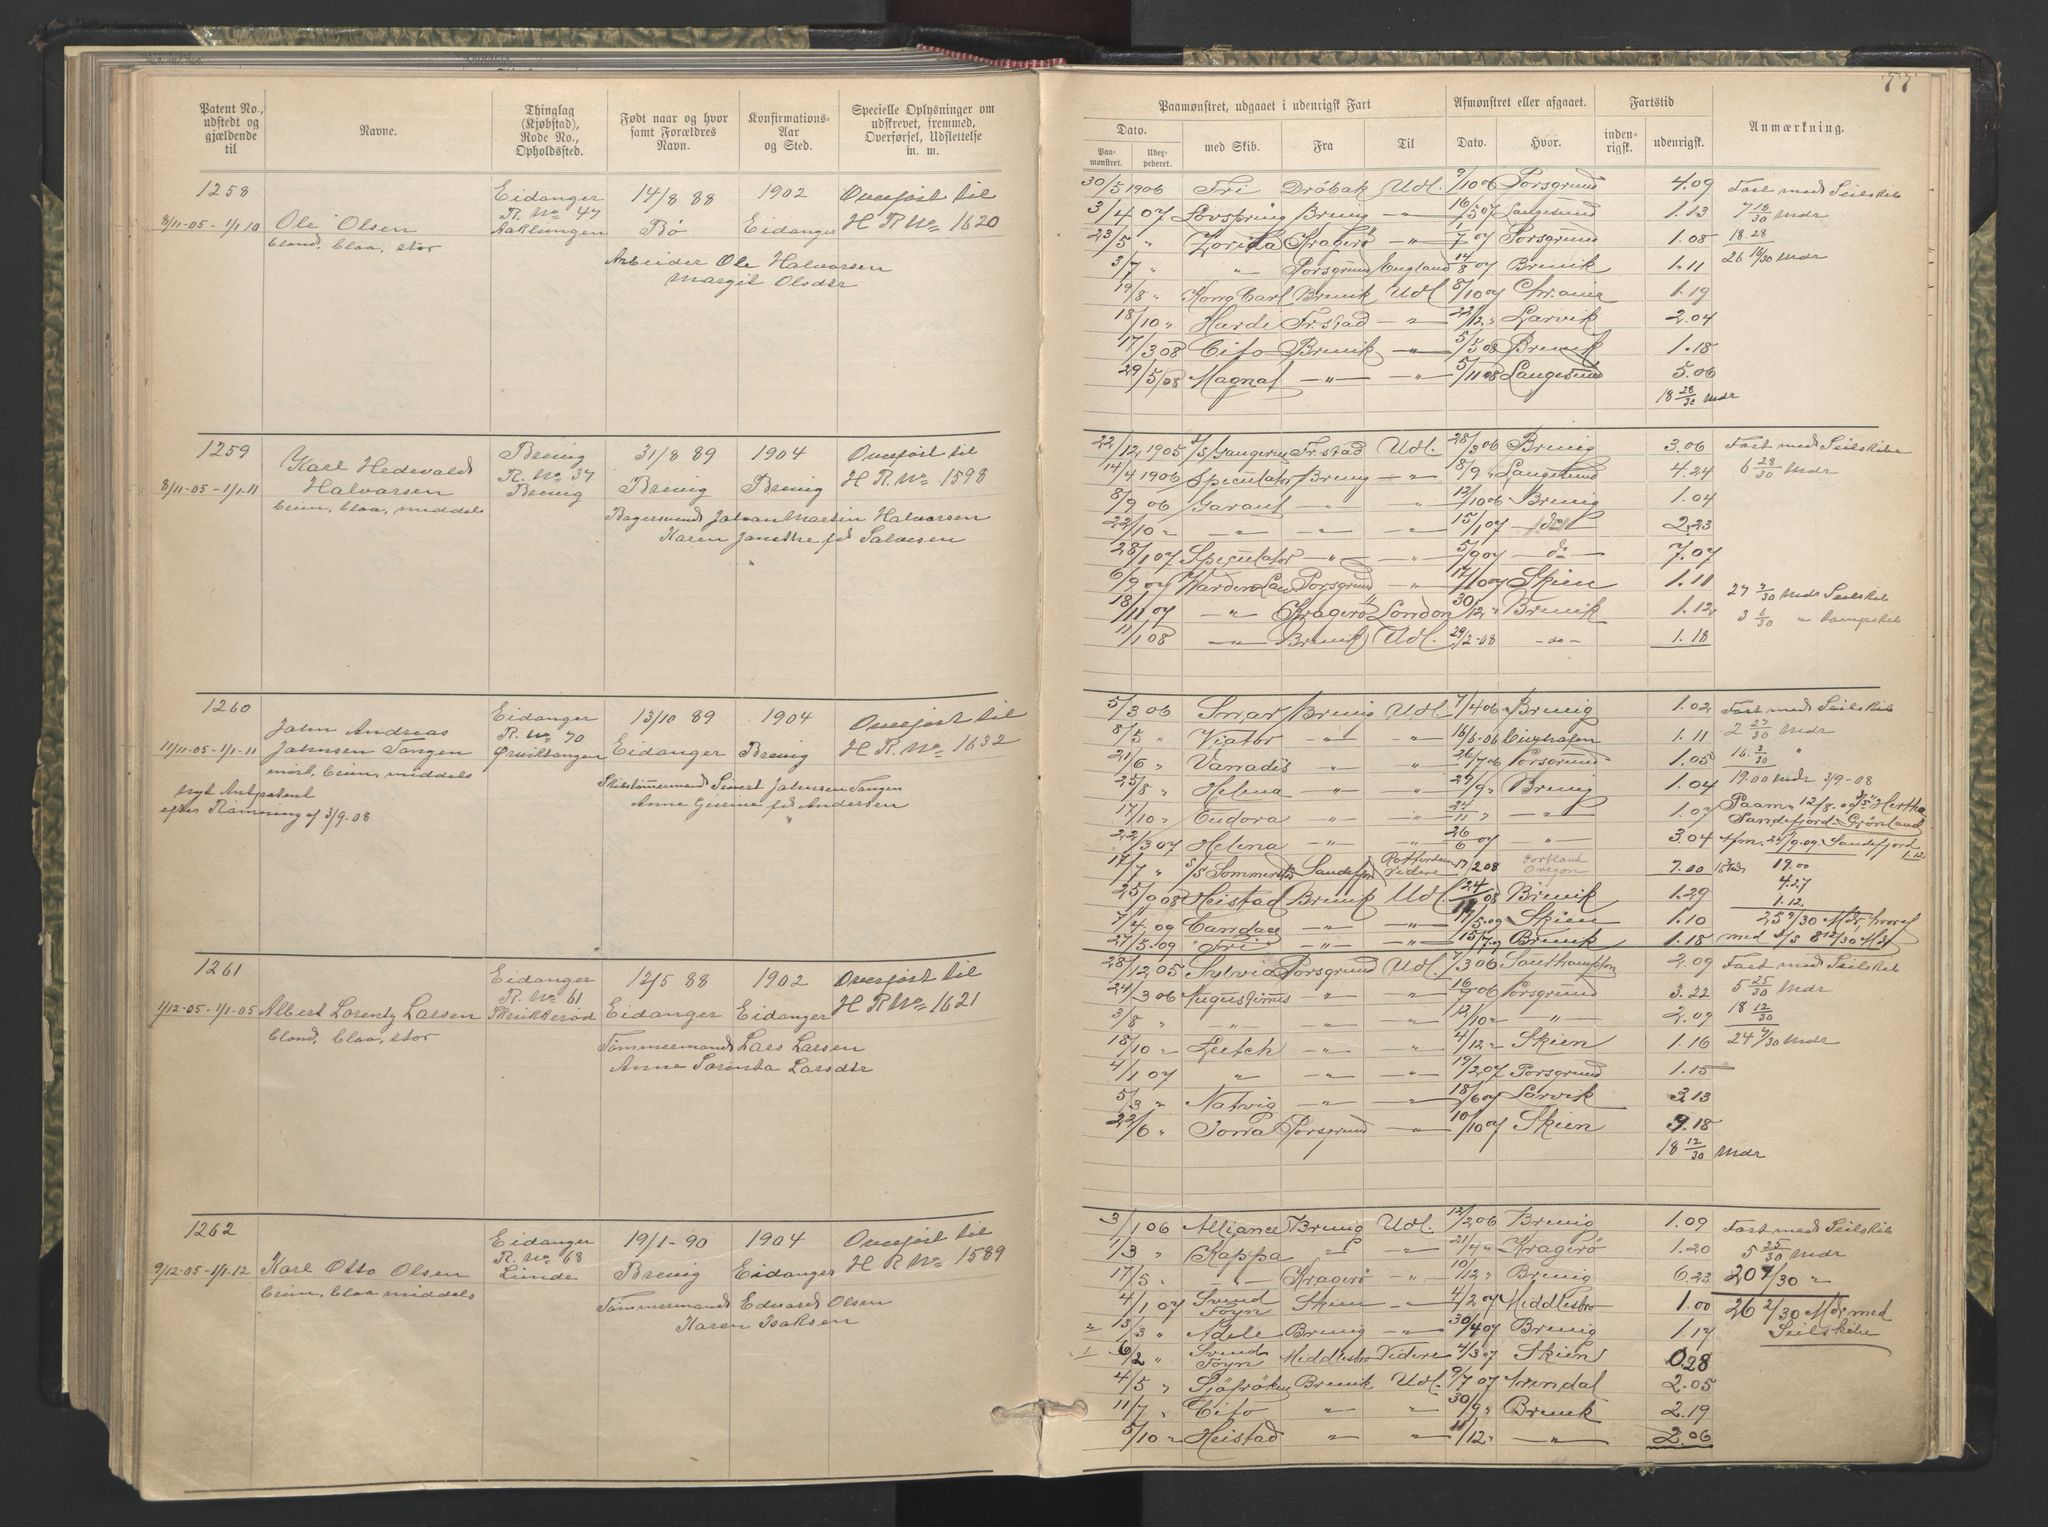 77
Patent No., udstedt og gjældende til
Navne.
Thinglag (Kjøbstad), Rode No., Opholdssted.
Født naar og hvor samt Forældres Navn.
Konfirmations-Aar og Sted.
Specielle Oplysninger om udskrevet, fremmed, Overførsel, Udslettelse m. m.
Paamønstret, udgaaet i udenrigsk Fart
Afmønstret eller afgaaet.
Fartstid
Anmærkning.
Dato.
Paamønstret.
Udexpederet.
med Skib.
Fra
Til
Dato.
Hvor.
indenrigsk.
udenrigsk.
1258 Eidanger 14/8 88 1902 Overført til
8/11-05 - 1/1 10 Ole Olsen R. No 47 Aaklungen Bø Eidanger H R No 1620
blond, blaa, stor
Arbeider Ole Halvorsen
Margit Olsdtr
30/5 1906 Fri Drøbak Udl. 9/10 06 Porsgrund 4.09 Fart med Seilskib
3/4 07 Lovspring Brevig -"- 16/5 07 Langesund 1.13 7 18/30 Mdr
23/5 " Zorida Kragerø -"- 1/7 07 Porsgrund 1.08 18.28
3/7 " " Porsgrund England 14/8 07 Brevik 1.11 26 16/30 Mdr
19/8 " Kong Carl Brevik Udl 8/10 07 Chr.ania 1.19
18/10 " Hardi Fr.stad -"- 22/12 " Larvik 2.04
17/3 08 Cito Brevik -"- 5/5 08 Brevik 1.18
29/5 08 Magnat -"- -"- 5/11 08 Langesund 5.06
18 28/30 Mdr
1259 Brevig 31/8 89 1904 Overført til
8/11-05 - 1/1-11 Karl Hedevald Halvorsen R. No 37 Brevig Brevig Brevig H R. No 1598
brun, blaa, middels
Bagersvend Johan Martin Halvorsen
Karen Janethe fd Salvesen
22/12 1905 Fr.stad Udl. 28/3 06 Brevig 3.06 Fart med Seilskibe
14/4 1906 Speculator Brevig -"- 18/9 " Langesund 4.24 6 28/30 Mdr
8/9 06 Garant -"- " 12/10 06 Brevig 1.04
22/10 " " " " 15/1 07 do 2.23
28/1 07 Speculator -"- " 5/9 07 do 7.07
6/9 07 Porsgrund " 17/10 07 Skien 1.11
27 7/30 Mdr Seilskib
18/11 07 -"- Kragerø London 30/12 " Brevik 1.12
3 6/30 " Dampskib
11/1 08 -"- Brevik Udl. 29/2-08 -do- 1.18
1260 Eidanger 13/10 89 1904 Overført til
11/11-05 - 1/1-11 John Andreas Johnsen Tangen R. No 70 Ørviktangen Eidanger Brevig H R. No 1632
mørk, brun, middels
Skibstømmermand Sivert Johnsen Tangen
Anne Gurine fd Andersen
nyt Antpatent
efter Rømning af 3/9-08
5/3 06 Snar Brevig Udl 7/4 06 Brevig 1.02 Fart med Seilskib
8/5 " Viator " " 16/6-06 Cuxhafen 1.11 2 27/30 Mdr
21/6 " Vanadis " " 26/7 06 Porsgrund 1.05 16 3/30 "
25/8 " Helena " " 29/9 " Brevig 1.04 19.00 Mdr 3/9-08
17/10 " Eudora " " 24/11 " -"- 1.07 Paam. 12/8.09 S/S Hertha
22/3 07 Helena " " 26/6 07 " 3.04 Sandefjord-Grønland
Afm. 24/9.09 Sandefjord 1.12
17/7 " S/S Sommerstad Sandefjord Rotterdam Videre 17/2 08 Portland Oregon 7.00 19.00
25/9 08 Heistad Brevik Udl 24/12 08 Brevik 1.29 4.27
7/4.09 Candace -"- -"- 17/5.09 Skien 1.10 1.12.
27/5.09 Fri -"- -"- 15/7.09 Brevik 1.18 25 9/30 Mdr, hvoraf
med S/S 8 12/30 Md
1261 Eidanger 12/5 88 1902 Overført til
1/12-05 - 1/1-05 Albert Lorentz Larsen R. No 61 Skrukkerød Eidanger Eidanger H R No 1621
blond, blaa, stor
Tømmermand Lars Larsen
Anne Sorenta Larsdtr
28/12 05 Sylvia Porsgrund Udl. 7/3 06 Southampton 2.09 Fart med Seilskib
24/3 06 Augustinus -"- -"- 16/7 06 Porsgrund 3.22 5 25/30 Mdr
3/8 " -"- -"- -"- 12/10 " " 2.09 18 12/30
18/10 " Leitch -"- -"- 4/12 " Skien 1.16 24 7/30 Mdr
4/1 07 " -"- -"- 19/2 07 Porsgrund 1.15
5/3 " Natvig -"- -"- 18/6 07 Larvik 3.13
22/6 " Jona Porsgrund -"- 10/10 07 Skien 3.18
18 12/30 Mdr
1262 Eidanger 19/1-90 1904 Overført til
9/12-05 - 1/1-12 Karl Otto Olsen R. No 68 Lunde Brevig Eidanger H R No 1589
brun, blaa middels
Tømmermand Eduard Olsen
Karen Isaksen
3/1 06 Alliance Brevig Udl. 12/2 06 Brevig 1.09 Fart med Seilskib
1/3 " Kappa " -"- 21/4 " Kragerø 1.20 5 25/30 Mdr
17/5 " -"- Kragerø -"- 10/12 " Brevig 6.23 20 7/30 "
4/1 07 Svend Foyn Skien -"- 4/2 07 Middlesbro 1.00 26 2/30 Mdr med
2 13/3 " Adele Brevig -"- 30/4 07 Brevig 1.17 Seilskibe
1 6/2 " Svend Foyn Middlesbro Videre 4/3 07 Skien 0.28
4/5 " Sjøfrøken Brevik Udl. 9/7 07 Arendal 2.05
11/7 " Cito " " 30/9 " Brevik 2.19
5/10 " Heistad " " 11/12 " -"- 2.06